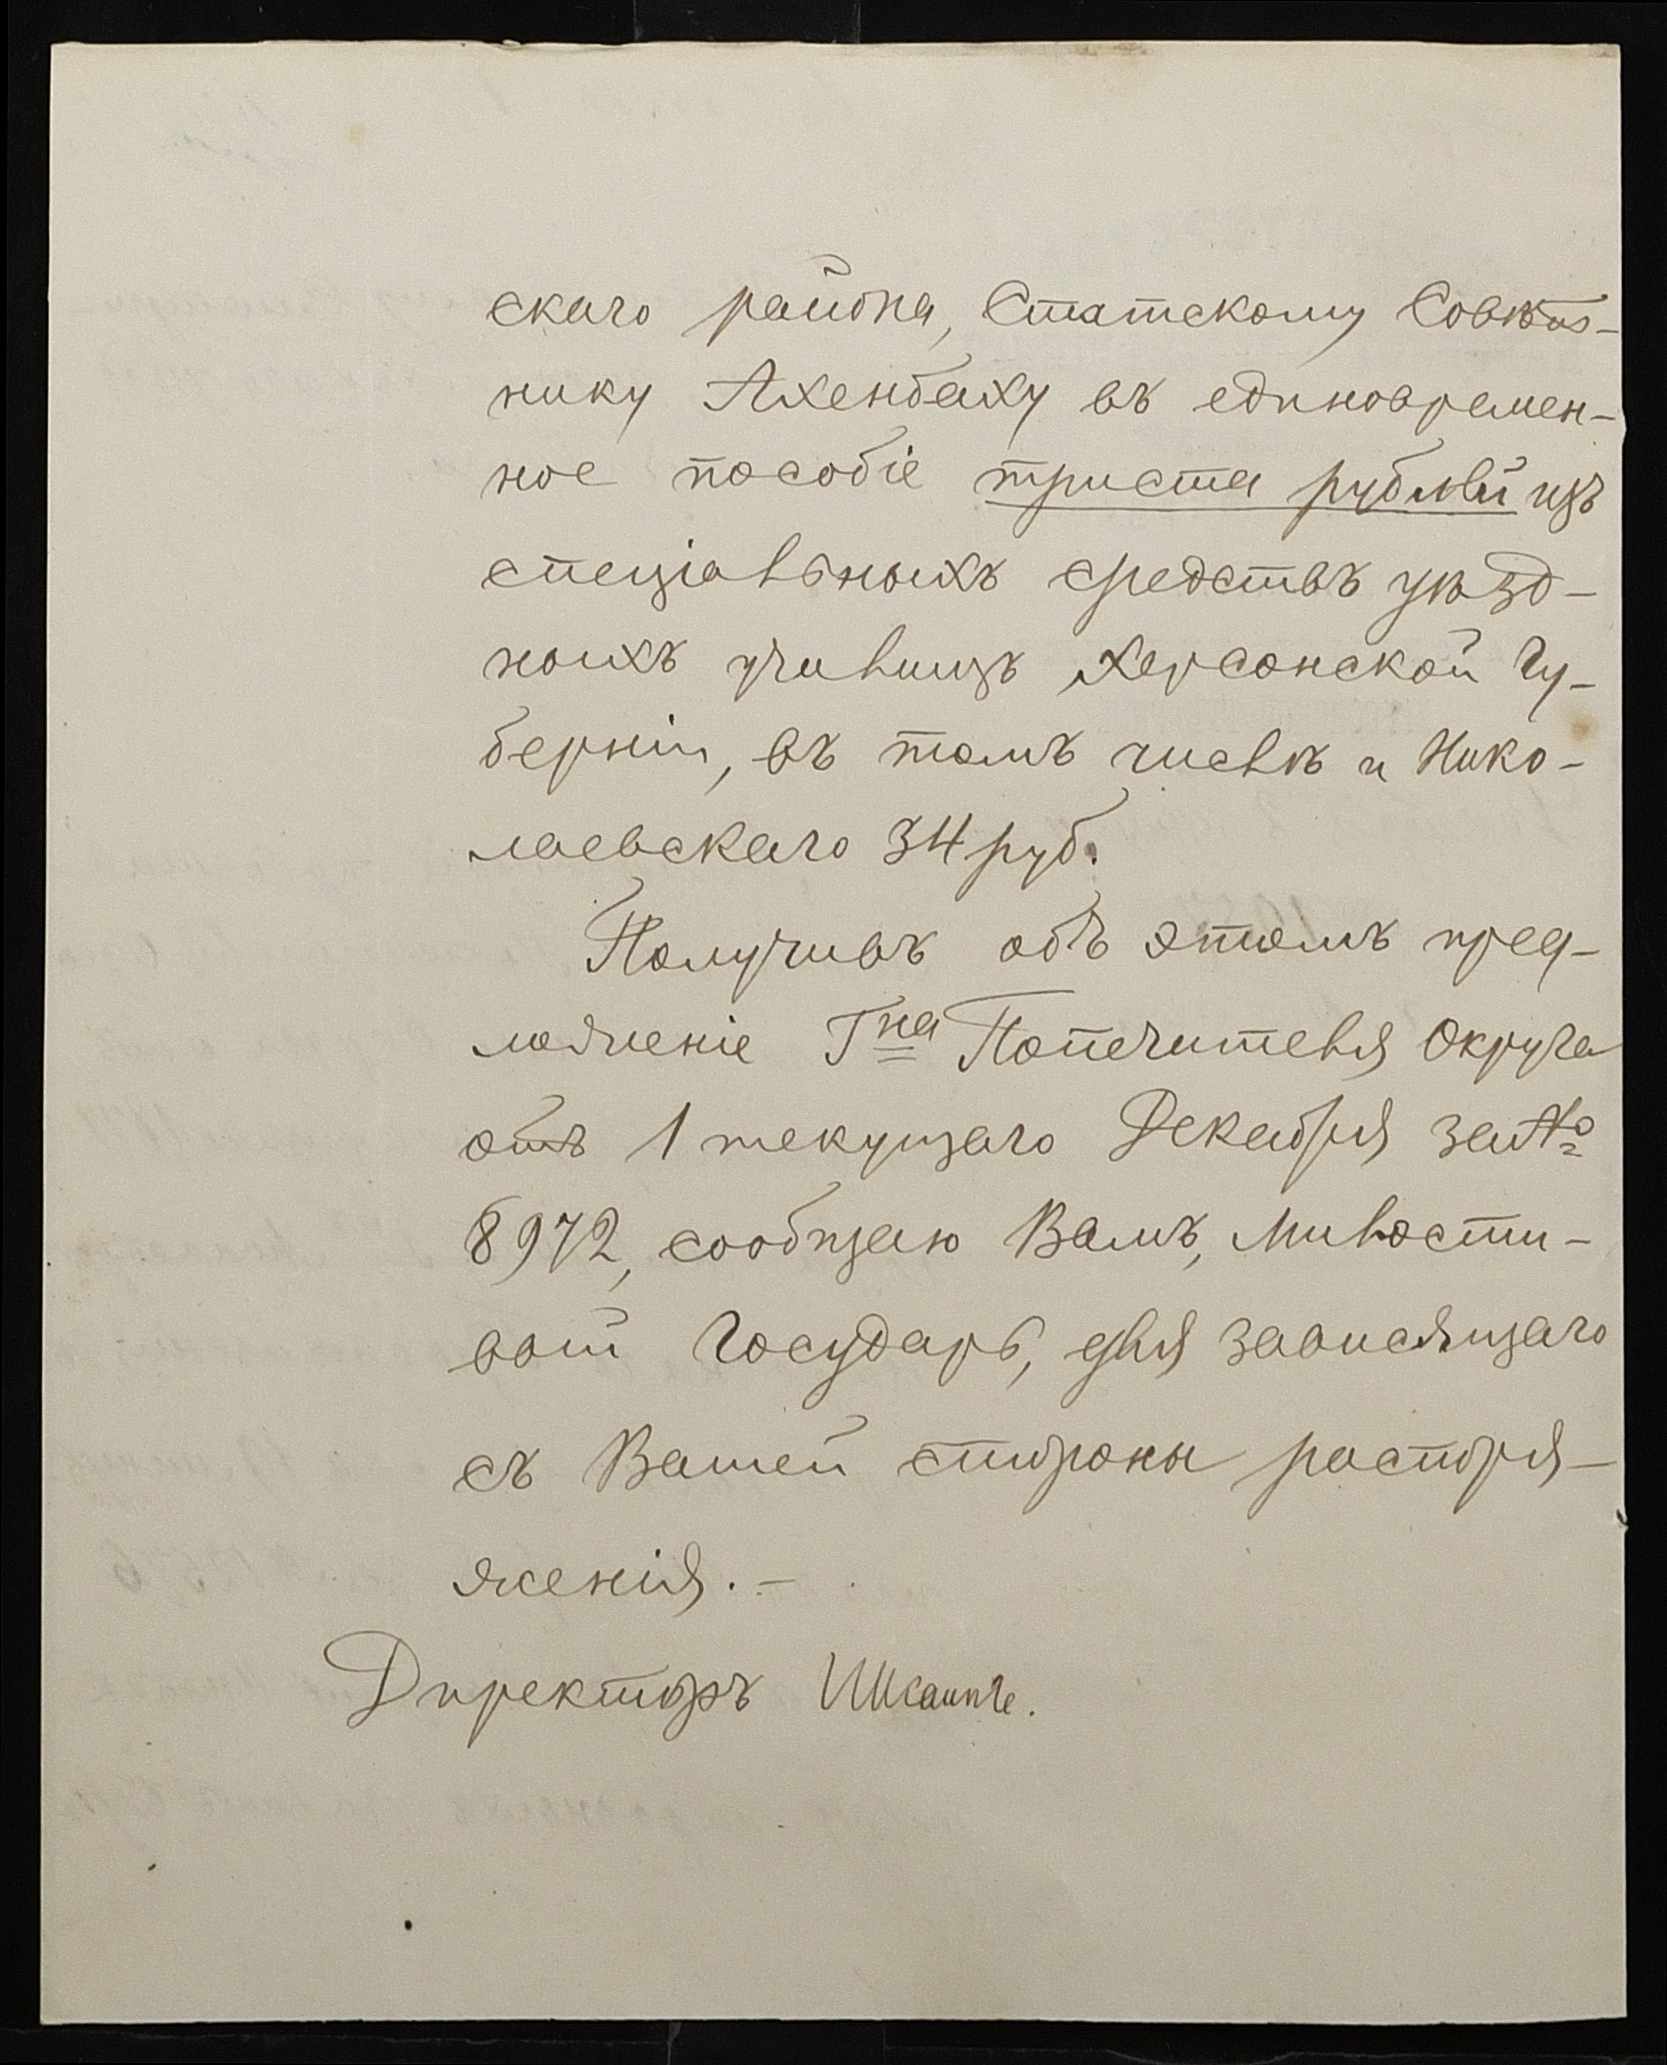 скаго района, Статскому Совѣт-
нику Ахенбаху въ единовремен-
ное пособіе триста рублей изъ
спеціальныхъ средствъ уѣзд-
ныхъ училищъ Херсонской Гу-
берніи, въ томъ числѣ и Нико-
лаевскаго 34 руб.
Получивъ объ этомъ пред-
ложеніе Гна Попечителя Округа
отъ 1 текущаго Декабря за №
8972, сообщаю Вамъ, Милости-
вый Государь, для зависящаго
съ Вашей стороны распоря-
женія. -
Директоръ